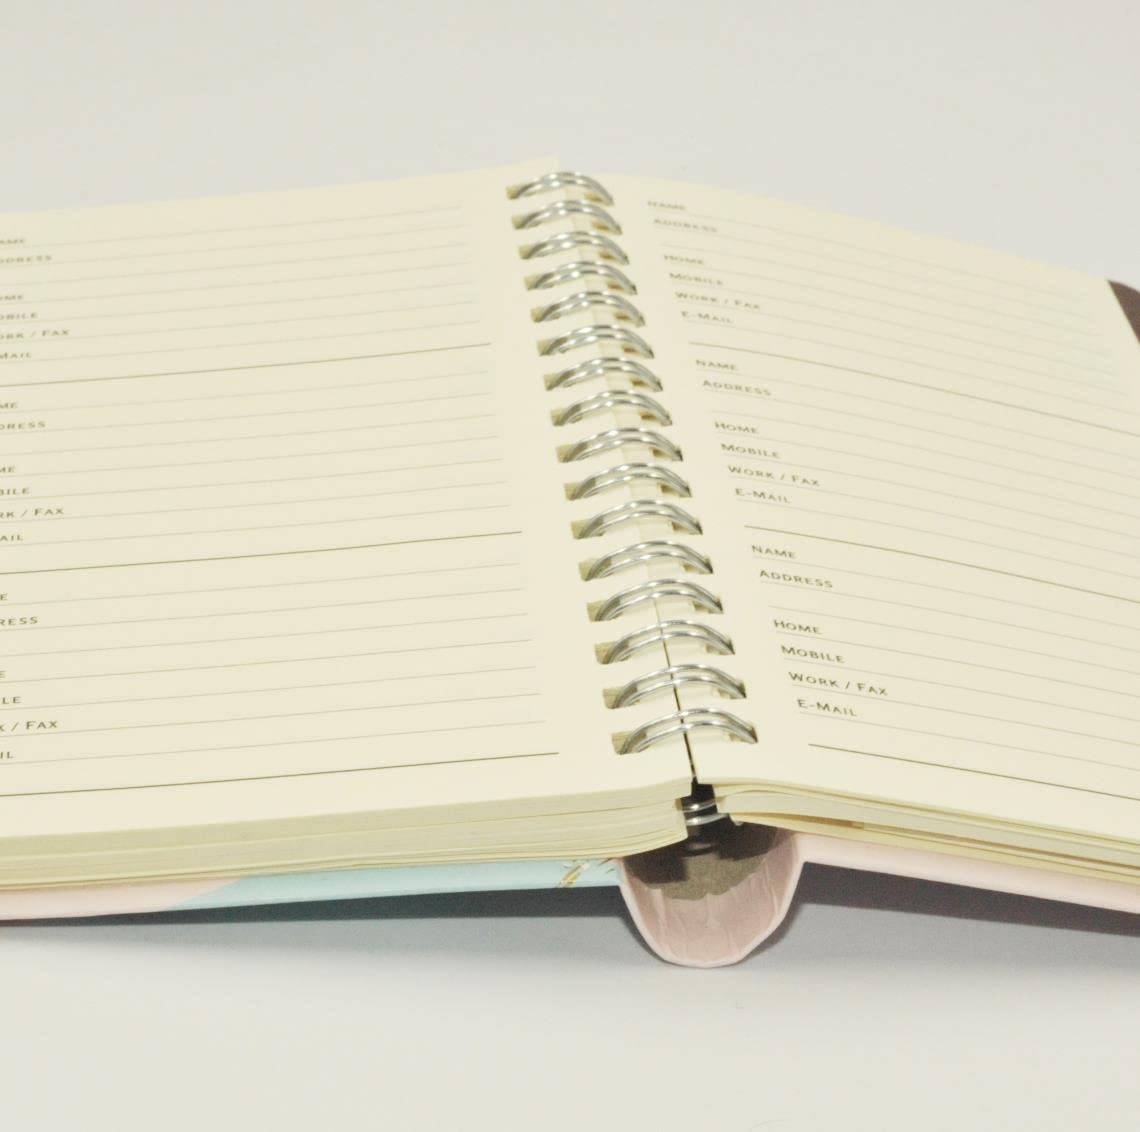 AME
DDRESS
OME
OBILE
ORK / FAX
MAIL
ME
DRESS
ME
BILE
RK / FAX
AIL
E
RESS
E
LE
K / FAX
IL
NAME
ADDRESS
HOME
MOBILE
WORK / FAX
E-MAIL
NAME
ADDRESS
HOME
MOBILE
WORK / FAX
E-MAIL
NAME
ADDRESS
HOME
MOBILE
WORK / FAX
E-MAIL